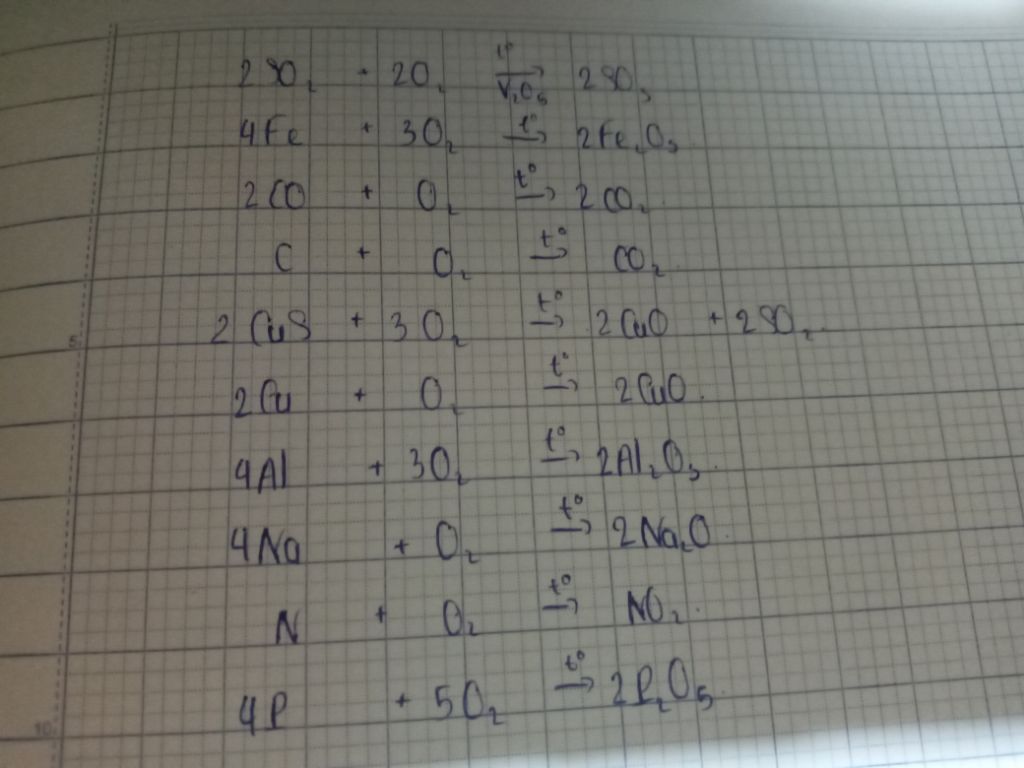 2SO₂ + 2O₂ t° → V₂O₅ 2SO₃
4Fe + 3O₂ t° → 2Fe₂O₃
2CO + O₂ t° → 2CO₂
C + O₂ t° → CO₂
5 2CuS + 3O₂ t° → 2CuO + 2SO₂
2Cu + O₂ t° → 2CuO
4Al + 3O₂ t° → 2Al₂O₃
4Na + O₂ t° → 2Na₂O
N + O₂ t° → NO₂
10 4P + 5O₂ t° → 2P₂O₅